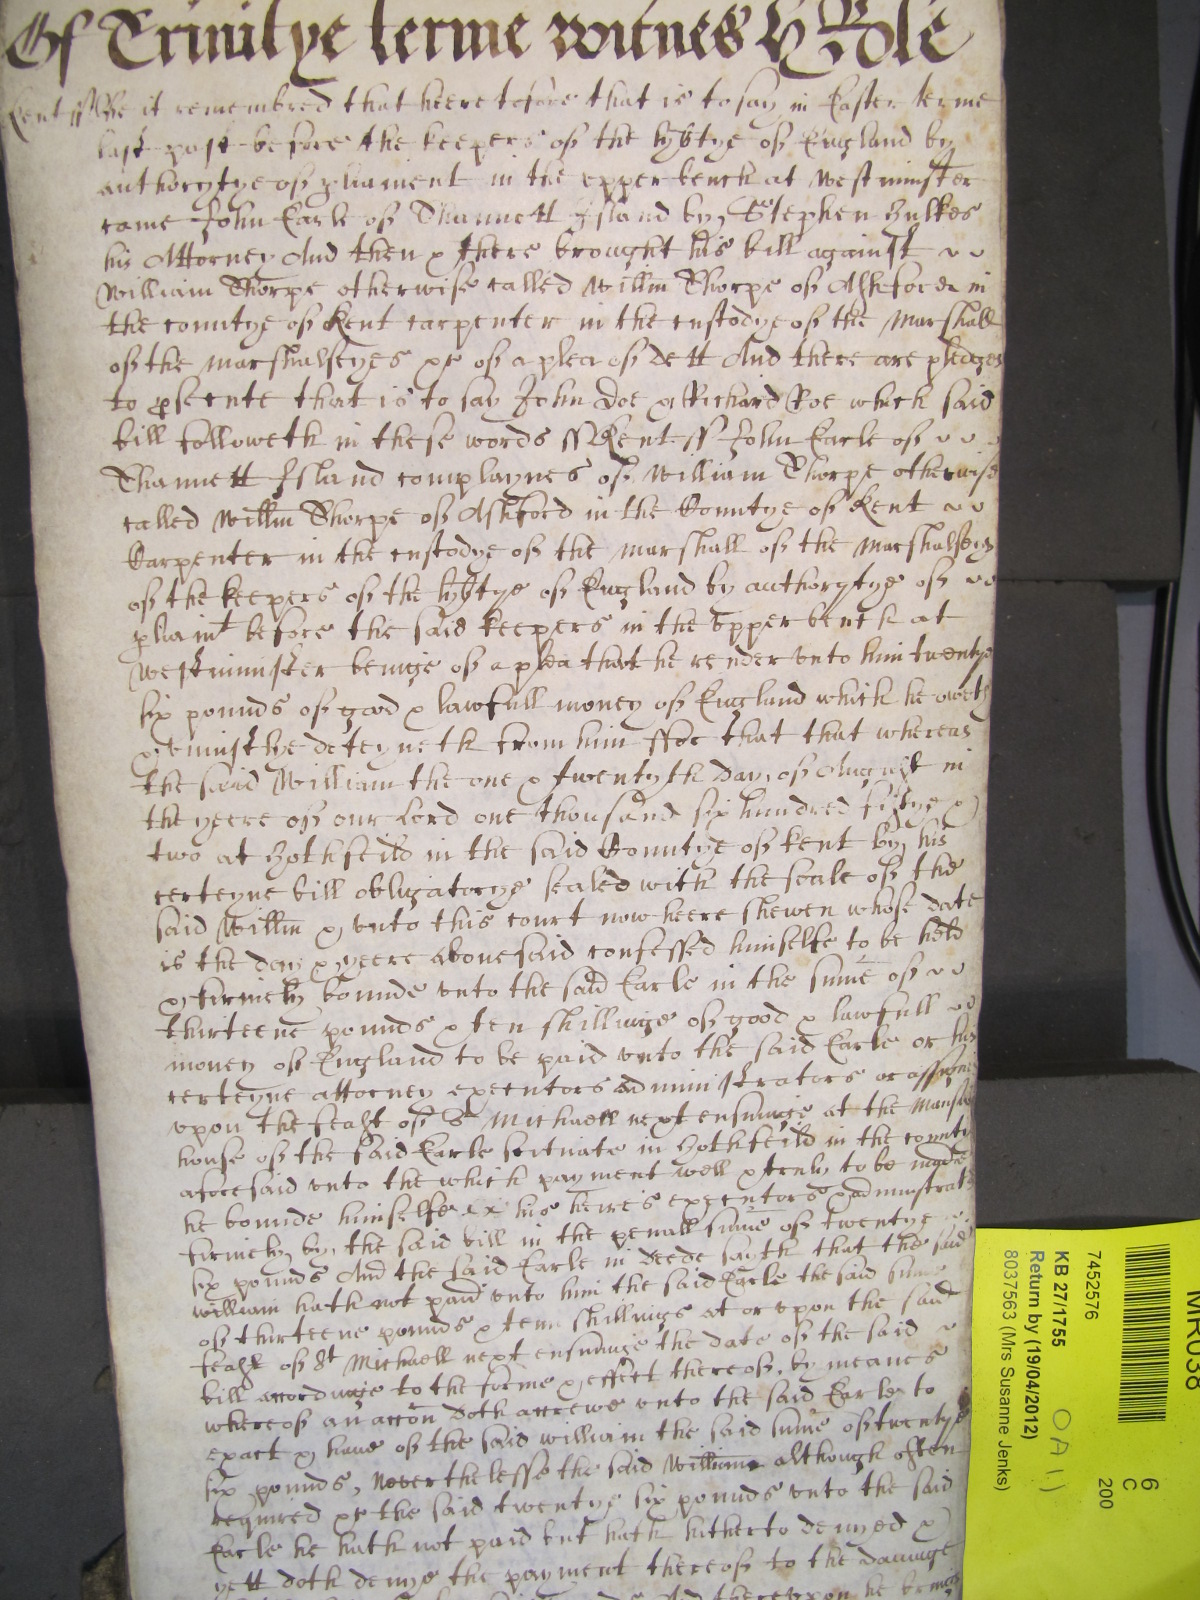 Of Trinitye terme Witnes H Role
Kent ss Be it remembred that heeretofore that is to say in Easter terme
last past before the keepers of the libtye of England by
authorytye of pliament in the upper bench at Westminster
came John Earle of Thannett Island by Stephen
his Attorney And then & there brought his bill against
William Thorpe otherwise called Willm Thorpe of Ashford in
the countye of Kent carpenter in the custodye of the Marshall
of the marshalseyes &c of a plea of dett And there are pledges
to psecute that is to say John Doe & Richard Roe which said
bill followeth in these words ss Kent ss John Earle of
Thannett Island complaynes of William Thorpe otherwise
called Willm Thorpe of Ashford in the Countye of Kent
Carpenter in the custodye of the marshall of the Marshalseys
of the keepers of the libtye of England by authorytye of
pliamt before the said keepers in the upper bench at
Westminster beinge of a plea that he render unto him twentye
six pounds of good & lawfull money of England which he oweth
& uniustlye deteyneth from him ffor that that whereas
the said William the one & twentyth day of August in
the yeere of our Lord one thousand six hundred fiftye &
two at Hothfeild in the said Countye of Kent by his
certeyne bill obligatorye sealed with the seale of the
said Willm & unto this court now heere shewen whose date
is the day & yeere abovesaid confessed himselfe to be held
& firmely bounde unto the said Earle in the sume of
thirteene pounds & ten shillinge of good & lawfull
money of England to be paid unto the said Earle or his
certeyne attorney executors administrators or assignes
upon the feast of St Michaell next ensuinge at the Mansion
house of the said Earle scituate in Hothfeild in the countie
aforesaid unto the which payment well & truly to be made
he bounde himselfe his heires executors & administrat
firmely by the said bill in the penall sume of twentye
six pounds And the said Earle in deede sayth that the said
William hath not paid unto him the said Earle the said sume
of thirteene pounds & tenn shillings at or upon the said
feast of St Michaell next ensuinge the date of the said
bill accordinge to the forme & effect thereof, by meanes
whereof an accon doth accrewe unto the said Earle to
exact & have of the said William the said sume of twentye
six pounds, Neverthelesse the said William although often
required &c the said twentye six pounds unto the said
Earle he hath not paid but hath hitherto denyed &
yett doth denye the payment thereof to the damage
And thereupon he brings
MR038
6
C
200
74525576
KB 27/1755
OA 1)
Return by (19/04/2012)
8037563 (Mrs Susanne Jenks)